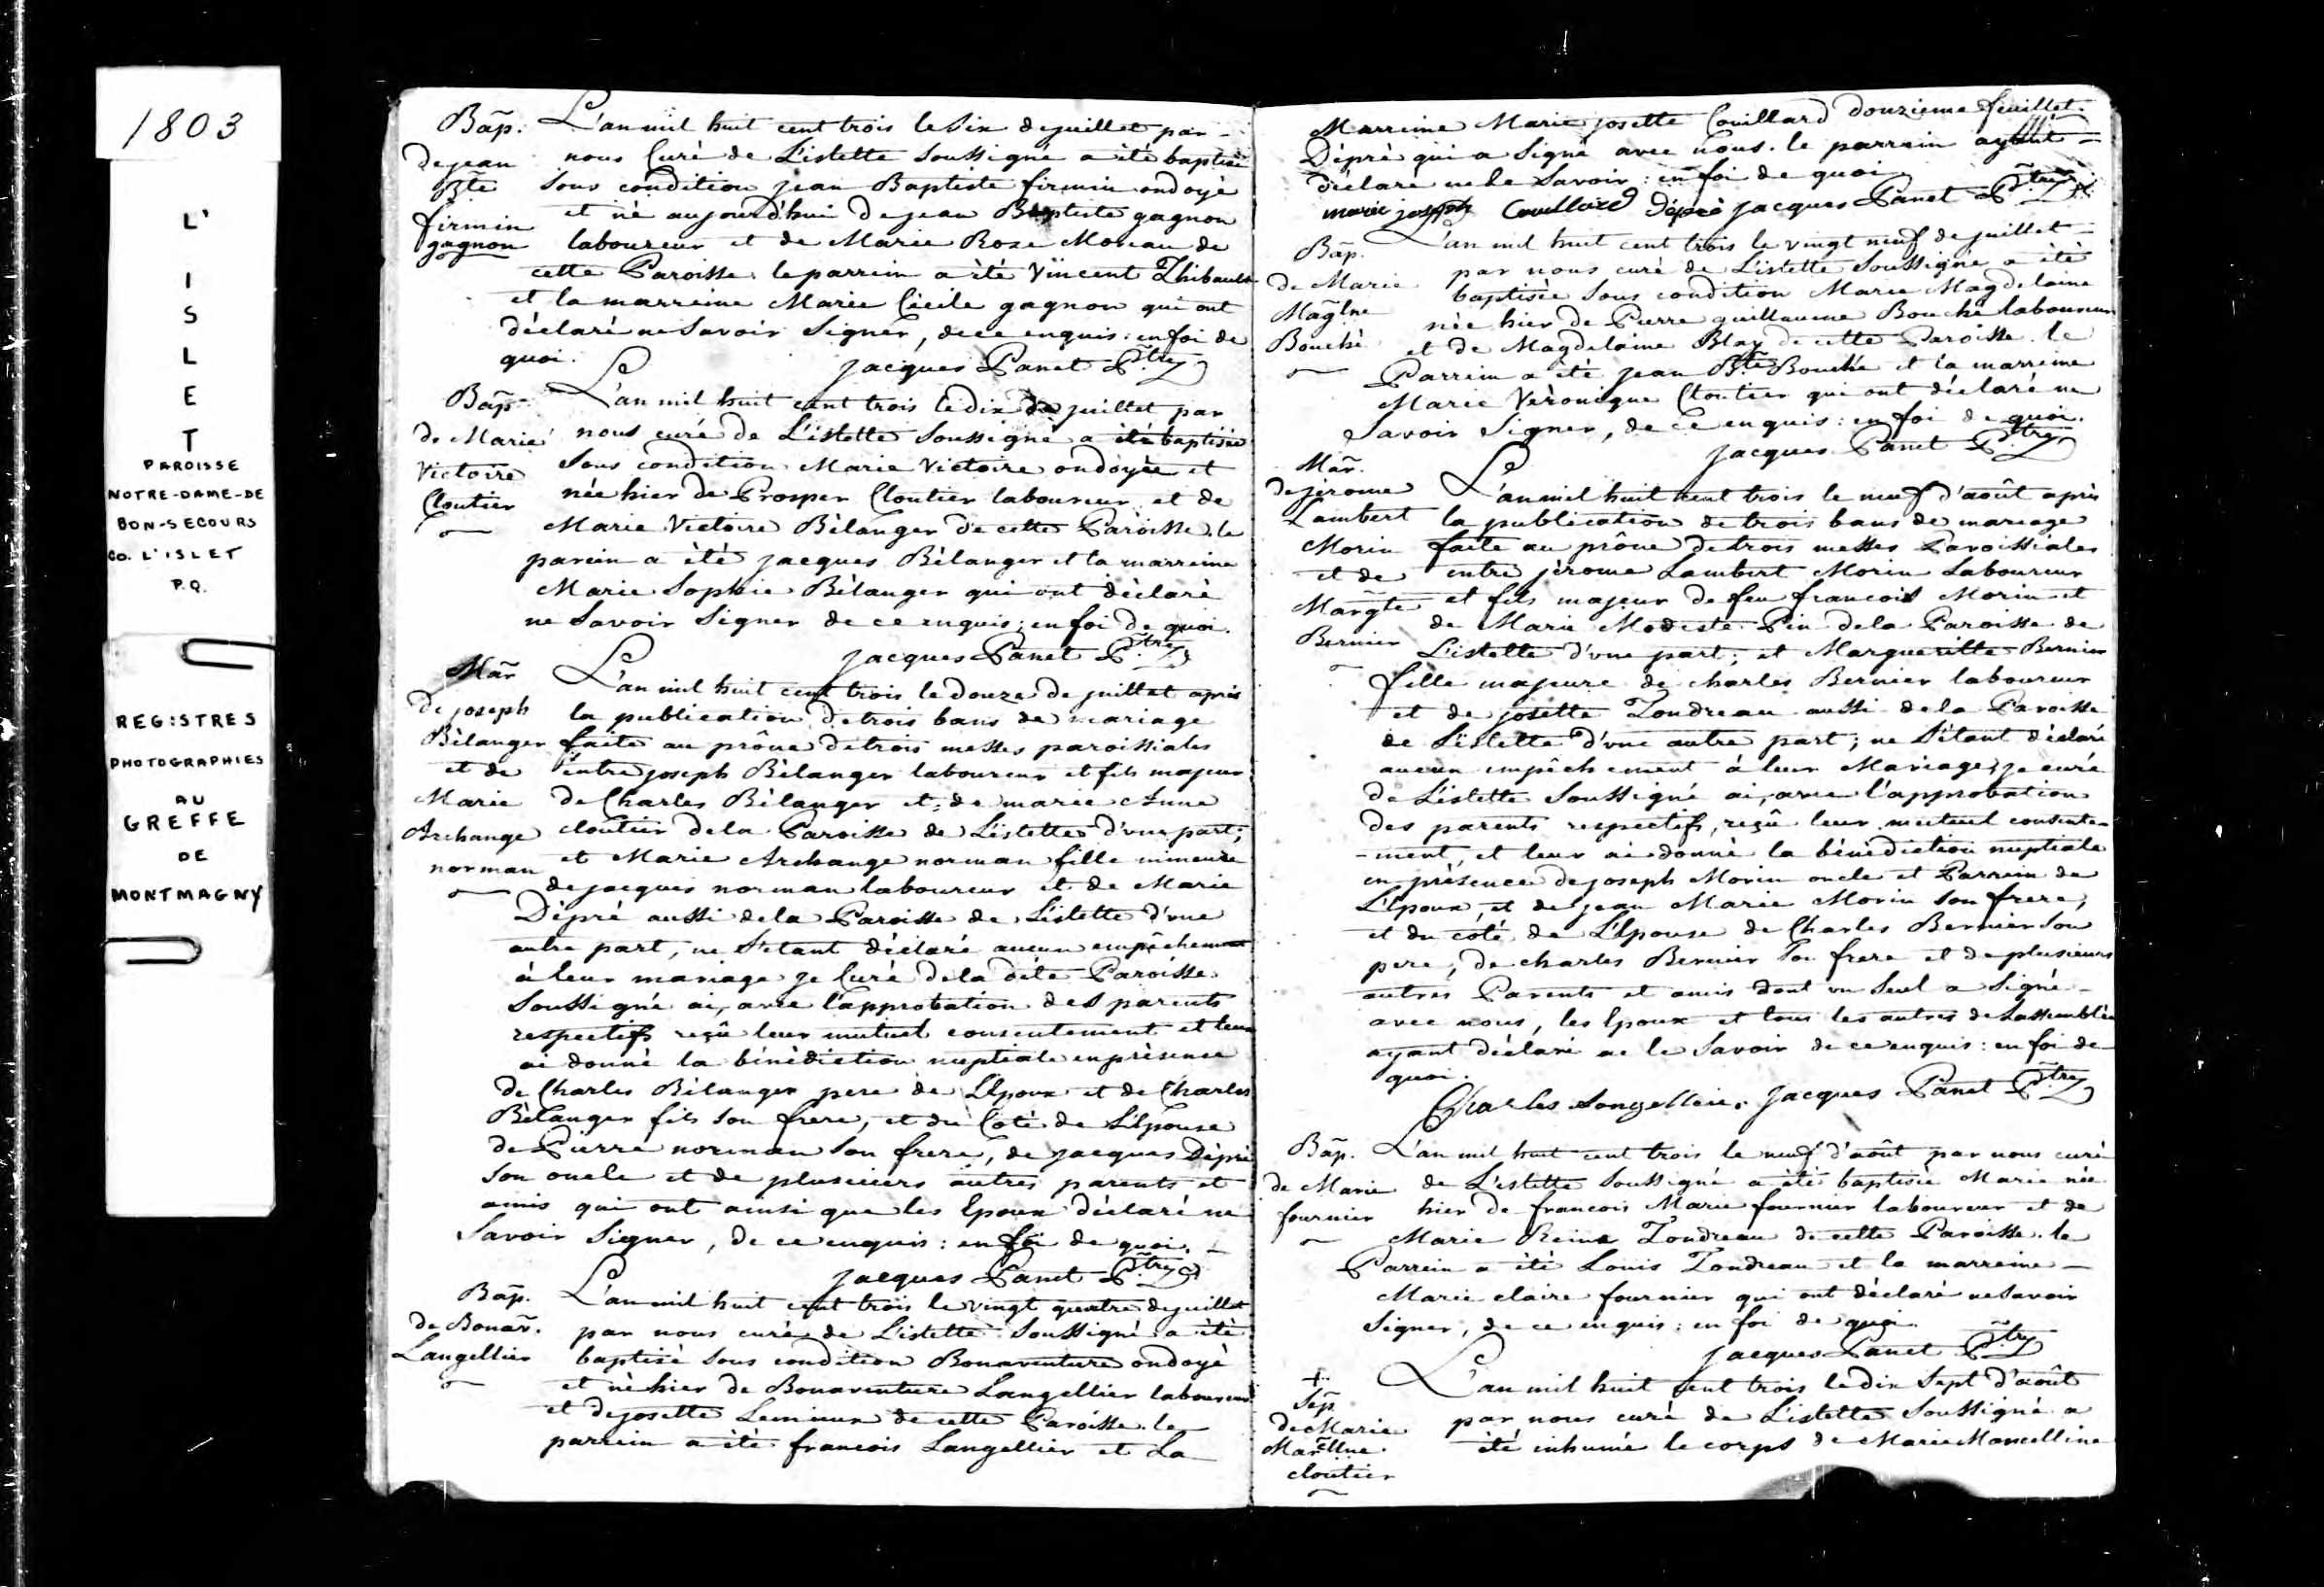 1803
L'
I
S
L
E
T
PAROISSE
NOTRE-DAME-DE
BON-SECOURS
Co. L'ISLET
P.Q.
REGISTRES
PHOTOGRAPHIES
AU
GREFFE
DE
MONTMAGNY
Bap̃.
de jean
Bte
firmin
gagnon
L'an mil huit cent trois le Six de juillet par
nous Curé de L'islette Soussigné a été baptisé
Sous condition jean Baptiste firmin ondoyé
et né aujourd'hui de jean Baptiste gagnon
laboureur et de Marie Rose Moreau de
cette Paroisse. le parrein a été Vincent Thibault
et la marreine Marie Cécile gagnon qui ont
déclaré ne Savoir Signer, de ce enquis: en foi de
quoi.
jacques Panet Ptre
Bap̃
de Marie
Victoire
Cloutier
L'an mil huit cent trois le dix de juillet par
nous curé de L'islette Soussigné a été baptisée
Sous condition Marie Victoire ondoyée et
née hier de Prosper Cloutier laboureur et de
Marie Victoire Bélanger de cette Paroisse. le
parein a été jacques Bélanger et la marreine
Marie Sophie Bélanger qui ont déclaré
ne Savoir Signer de ce enquis; en foi de quoi.
jacques Panet Ptre
Mar̃
de joseph
Bélanger
et de
Marie
Archange
norman
L'an mil huit cent trois le douze de juillet après
la publication de trois bans de mariage
faite au prône de trois messes paroissiales
entre joseph Bélanger laboureur et fils majeur
de Charles Bélanger et de marie Anne
cloutier de la Paroisse de L'islette d'une part;
et Marie Archange norman fille mineure
de jacques norman laboureur et de Marie
Dépré aussi de la Paroisse de L'islette d'une
autre part, ne S'etant déclaré aucun empêchement
à leur mariage je Curé de la dite Paroisse
Soussigné ai, avec l'approbation des parents
respectifs reçû leur mutuel consentement et leur
ai donné la bénédiction nuptiale en présence
de Charles Bélanger pere de L'Epoux et de Charles
Bélanger fils son frere, et du Coté de L'Epouse
de Pierre norman Son frere, de jacques Dépré
Son oncle et de plusieurs autres parents et
amis qui ont ainsi que les Epoux déclaré ne
Savoir Signer, de ce enquis: en foi de quoi.
jacques Panet Ptre
Bap̃.
de Bonav̄.
Langellier
L'an mil huit cent trois le vingt quatre de juillet
par nous curé de L'islette Soussigné a été
baptisé Sous condition Bonaventure ondoyé
et né hier de Bonaventure Langellier laboureur
et de josette Lemieux de cette Paroisse. le
parrein a été francois Langellier et La
Marreine Marie josette Couillard douzieme feuillet.
Dépré qui a Signé avec nous. le parrein ayant
déclaré ne le Savoir: en foi de quoi
marie joseph Couillard Dépré jacques Panet Ptre
Bap̃.
de Marie
Magl̃ne
Bouché
L'an mil huit cent trois le vingt neuf de juillet
par nous curé de L'islette Soussigné a été
baptisée Sous condition Marie Magdelaine
née hier de Pierre guillaume Bouché laboureur
et de Magdelaine Blay de cette Paroisse. le
Parrein a été jean Bte Bouché et la marreine
Marie Véronique Cloutier qui ont déclaré ne
Savoir Signer, de ce enquis: en foi de quoi.
jacques Panet Ptre
Mar̃.
de jérome
Lambert
Morin
et de
Marg̃te
Bernier
L'an mil huit cent trois le neuf d'août après
la publication de trois bans de mariage
faite au prône de trois messes Paroissiales
entre jérome Lambert Morin Laboureur
et fils majeur de feu francois Morin et
de Marie Modeste Pin de la Paroisse de
L'islette d'une part; et Marguerite Bernier
fille majeure de charles Bernier laboureur
et de josette Tondreau aussi de la Paroisse
de L'islette d'une autre part; ne S'étant déclaré
aucun empêchement à leur Mariage, je curé
de L'islette Soussigné ai, avec l'approbation
des parents respectifs, reçû leur mutuel consente-
-ment, et leur ai donné la bénédiction nuptiale
en présence de joseph Morin oncle et Parrein de
L'Epoux, et de jean Marie Morin Son frere,
et du côté de L'Epouse de Charles Bernier Son
pere, de charles Bernier Son frere et de plusieurs
autres Parents et amis dont un Seul a Signé
avec nous, les Epoux et tous les autres de Lassemblée
ayant déclaré ne le Savoir de ce enquis: en foi de
quoi.
Charles Langellier. jacques Panet Ptre
Bap̃.
de Marie
fournier
L'an mil huit cent trois le neuf d'août par nous curé
de L'islette Soussigné a été baptisée Marie née
hier de francois Marie fournier laboureur et de
Marie Reine Tondreau de cette Paroisse. le
Parrein a été Louis Tondreau et la marreine
Marie claire fournier qui ont déclaré ne Savoir
Signer, de ce enquis: en foi de quoi.
jacques Panet Ptre
+
Sep̃.
de Marie
Marc̃llne
cloutier
L'an mil huit cent trois le dix Sept d'août
par nous curé de L'islette Soussigné a
été inhumé le corps de Marie Marcelline